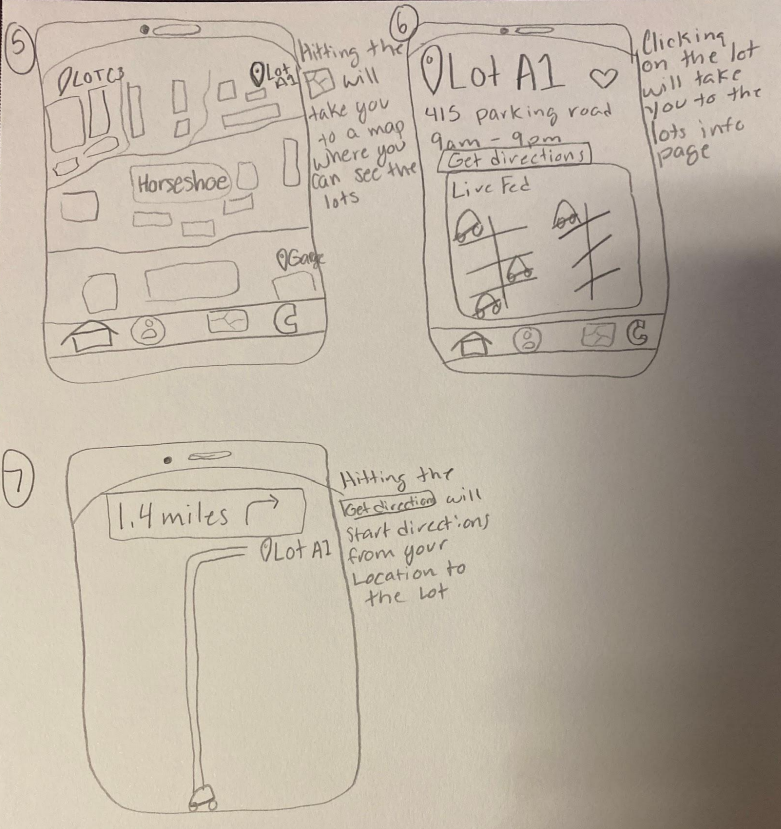 5
LOTC3
Lot
A1
Horseshoe
Garge
Hitting the
will
take you
to a map
where you
can see the
lots
6
Lot A1
415 parking road
9am - 9pm
Get directions
Live Fed
Clicking
on the lot
will take
you to the
lots info
page
7
1.4 miles
Lot A1
Hitting the
Get direction will
Start directions
from your
Location to
the Lot